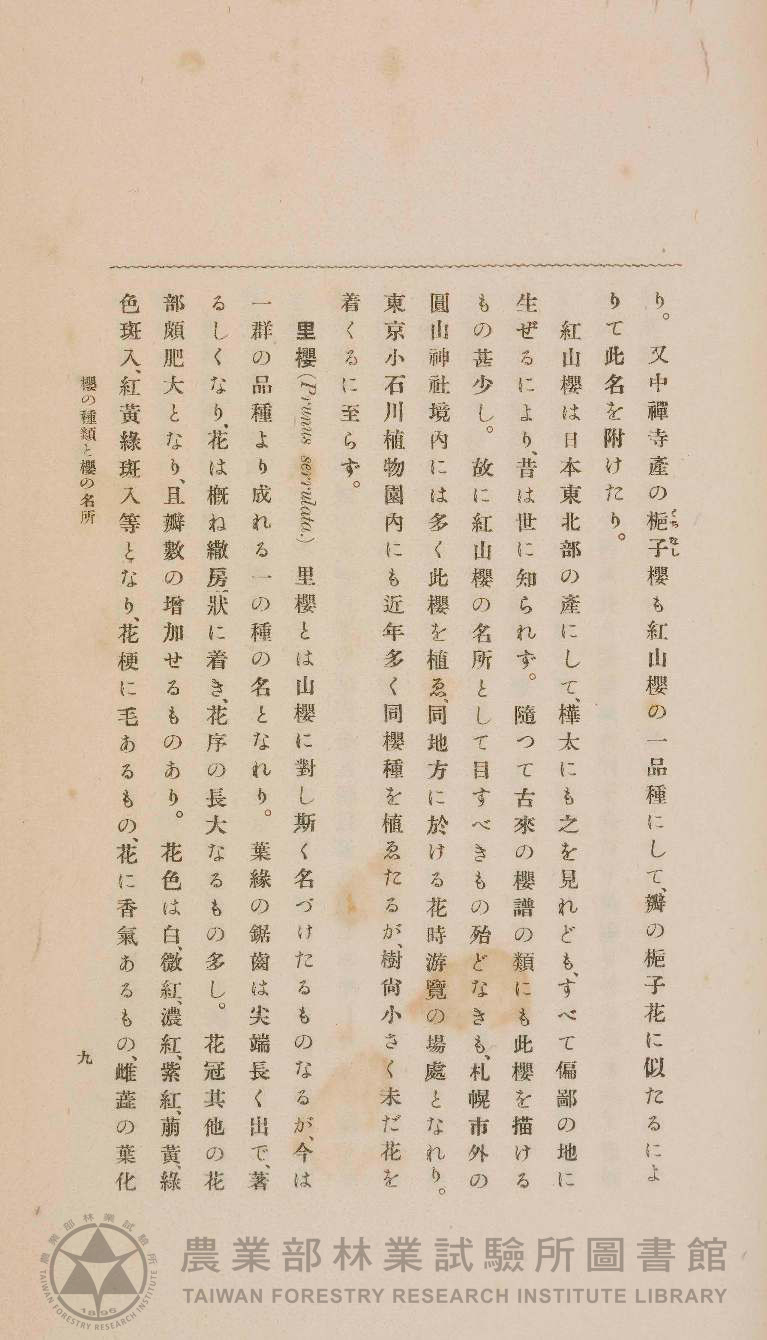 り。又中禪寺產の梔子櫻も紅山櫻の一品種にして、瓣の梔子花に似たるによ
くちなし
りて此名を附けたり。
紅山櫻は日本東北部の產にして、樺太にも之を見れども、すべて偏鄙の地に
生ぜるにより、昔は世に知られず。隨つて古來の櫻譜の類にも此櫻を描ける
もの甚少し。故に紅山櫻の名所として目すべきもの殆どなきも、札幌市外の
圓山神社境內には多く此櫻を植ゑ、同地方に於ける花時游覽の場處となれり。
東京小石川植物園內にも近年多く同櫻種を植ゑたるが、樹尙小さく未だ花を
着くるに至らず。
里櫻(Prunus serrulata.) 里櫻とは山櫻に對し斯く名づけたるものなるが、今は
一群の品種より成れる一の種の名となれり。葉緣の鋸齒は尖端長く出で、著
るしくなり、花は槪ね繖房狀に着き、花序の長大なるもの多し。花冠其他の花
部頗肥大となり、且瓣數の增加せるものあり。花色は白、微紅、濃紅、紫紅、萠黃、綠
色斑入、紅黃綠斑入等となり、花梗に毛あるもの、花に香氣あるもの、雌蘂の葉化
櫻の種類と櫻の名所
九
農業部林業試驗所圖書館
TAIWAN FORESTRY RESEARCH INSTITUTE LIBRARY
農業部林業試驗所
TAIWAN FORESTRY RESEARCH INSTITUTE
1895